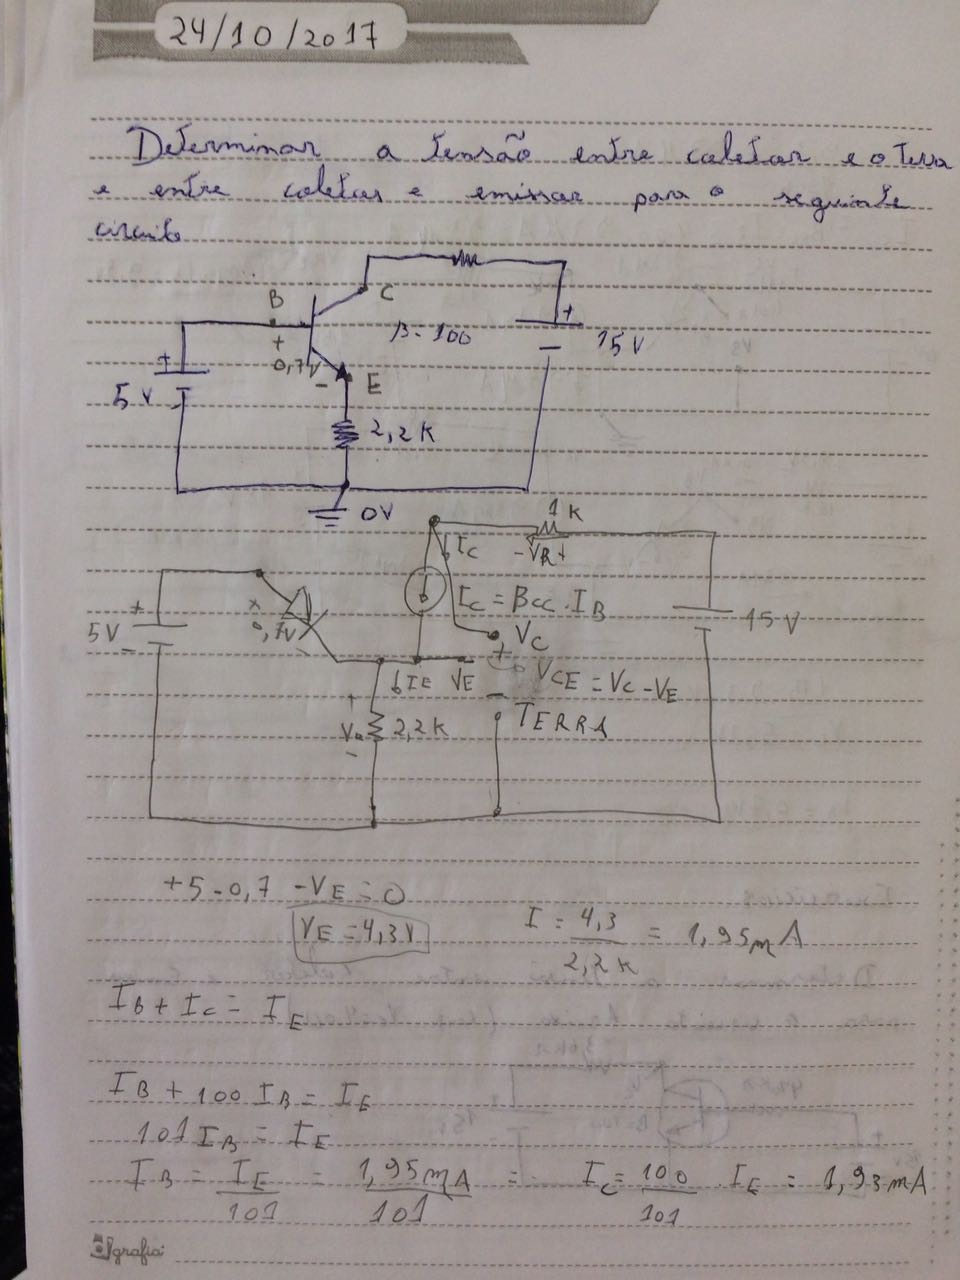 24/10/2017
Determinar a tensão entre coletor e o terra
e entre coletor e emissor para o seguinte
circuito
B
C
β = 100
+
15 V
-
+
5 V
-
+
0,7V
-
E
2,2K
0V
1K
-VR+
IC
IC = BCC . IB
+
5V
-
+
0,7V
-
15 V
VC
+
IE
VE
VCE = VC - VE
-
TERRA
+
-
2,2K
+5 - 0,7 - VE = 0
VE = 4,3V
I = 4,3 / 2,2K = 1,95mA
IB + IC = IE
IB + 100 IB = IE
101 IB = IE
IB = IE / 101 = 1,95mA / 101 = IC = 100 / 101 . IE = 1,93mA
grafia